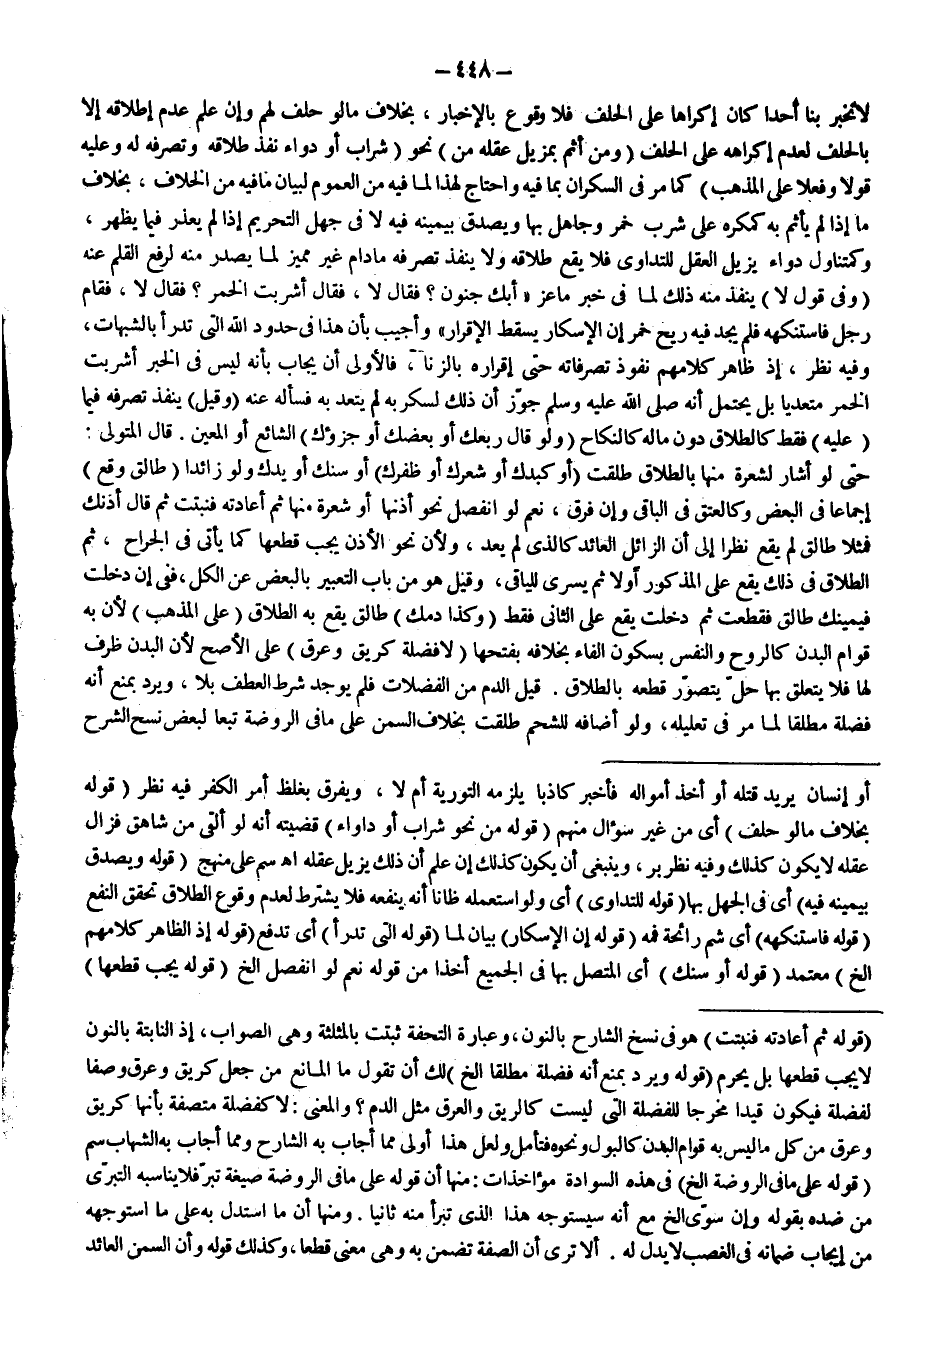 — ٤٤٨ —
لاتخبر بنا أحدا كان إكراها على الحلف فلا وقوع بالإخبار ، بخلاف مالو حلف لهم وإن علم عدم إطلاقه إلا
بالحلف لعدم إكراهه على الحلف ( ومن أثم بمزيل عقله من ) نحو ( شراب أو دواء نفذ طلاقه وتصرفه له وعليه
قولا وفعلا على المذهب ) كما مر فى السكران بما فيه واحتاج لهذا لما فيه من العموم لبيان مافيه من الخلاف ، بخلاف
ما إذا لم يأثم به كمكره على شرب خمر وجاهل بها ويصدق بيمينه فيه لا فى جهل التحريم إذا لم يعذر فيما يظهر ،
وكمتناول دواء يزيل العقل للتداوى فلا يقع طلاقه ولا ينفذ تصرفه مادام غير مميز لما يصدر منه لرفع القلم عنه
( وفى قول لا ) ينفذ منه ذلك لما فى خبر ماعز « أبك جنون ؟ فقال لا ، فقال أشربت الخمر ؟ فقال لا ، فقام
رجل فاستنكهه فلم يجد فيه ريح خمر إن الإسكار يسقط الإقرار» وأجيب بأن هذا فى حدود الله التى تدرأ بالشبهات ،
وفيه نظر ، إذ ظاهر كلامهم نفوذ تصرفاته حتى إقراره بالزنا ، فالأولى أن يجاب بأنه ليس فى الخبر أشربت
الخمر متعديا بل يحتمل أنه صلى الله عليه وسلم جوّز أن ذلك لسكر به لم يتعد به فسأله عنه (وقيل) ينفذ تصرفه فيما
( عليه ) فقط كالطلاق دون ماله كالنكاح ( ولو قال ربعك أو بعضك أو جزؤك) الشائع أو المعين . قال المتولى :
حتى لو أشار لشعرة منها بالطلاق طلقت (أو كبدك أو شعرك أو ظفرك) أو سنك أو يدك ولو زائدا ( طالق وقع )
إجماعا فى البعض وكالعتق فى الباقى وإن فرق ، نعم لو انفصل نحو أذنها أو شعرة منها ثم أعادته فنبتت ثم قال أذنك
فمثلا طالق لم يقع نظرا إلى أن الزائل العائد كالذى لم يعد ، ولأن نحو الأذن يجب قطعها كما يأتى فى الجراح ، ثم
الطلاق فى ذلك يقع على المذكور أولا ثم يسرى للباقى ، وقيل هو من باب التعبير بالبعض عن الكل ، ففى إن دخلت
فيمينك طالق فقطعت ثم دخلت يقع على الثانى فقط ( وكذا دمك ) طالق يقع به الطلاق ( على المذهب ) لأن به
قوام البدن كالروح والنفس بسكون الفاء بخلافه بفتحها ( لافضلة كريق وعرق ) على الأصح لأن البدن ظرف
لها فلا يتعلق بها حلّ يتصوّر قطعه بالطلاق . قيل الدم من الفضلات فلم يوجد شرط العطف بلا ، ويرد بمنع أنه
فضلة مطلقا لما مر فى تعليله ، ولو أضافه للشحم طلقت بخلاف السمن على مافى الروضة تبعا لبعض نسخ الشرح
أو إنسان يريد قتله أو أخذ أمواله فأخبر كاذبا يلزمه التورية أم لا ، ويفرق بغلظ أمر الكفر فيه نظر ( قوله
بخلاف مالو حلف ) أى من غير سؤال منهم ( قوله من نحو شراب أو داواء ) قضيته أنه لو ألقى من شاهق فزال
عقله لايكون كذلك وفيه نظر بر ، وينبغى أن يكون كذلك إن علم أن ذلك يزيل عقله اه سم على منهج ( قوله ويصدق
بيمينه فيه) أى فى الجهل بها ( قوله للتداوى ) أى ولو استعمله ظانا أنه ينفعه فلا يشترط لعدم وقوع الطلاق تحقق النفع
( قوله فاستنكهه) أى شم رائحة فمه ( قوله إن الإسكار) بيان لما (قوله التى تدرأ ) أى تدفع (قوله إذ الظاهر كلامهم
الخ ) معتمد ( قوله أو سنك ) أى المتصل بها فى الجميع أخذا من قوله نعم لو انفصل الخ ( قوله يجب قطعها )
(قوله ثم أعادته فنبتت ) هو فى نسخ الشارح بالنون ، وعبارة التحفة ثبتت بالمثلثة وهى الصواب ، إذ النابتة بالنون
لايجب قطعها بل يحرم (قوله ويرد بمنع أنه فضلة مطلقا الخ ) لك أن تقول ما المانع من جعل كريق وعرق وصفا
لفضلة فيكون قيدا مخرجا للفضلة التى ليست كالريق والعرق مثل الدم ؟ والمعنى : لا كفضلة متصفة بأنها كريق
وعرق من كل ماليس به قوام البدن كالبول ونحوه فتأمل ولعل هذا أولى مما أجاب به الشارح ومما أجاب به الشهاب سم
( قوله على مافى الروضة الخ) فى هذه السوادة مؤاخذات : منها أن قوله على مافى الروضة صيغة تبرّ فلا يناسبه التبرّى
من ضده بقوله وإن سوّى الخ مع أنه سيستوجه هذا الذى تبرأ منه ثانيا . ومنها أن ما استدل به على ما استوجهه
من إيجاب ضمانه فى الغصب لايدل له . ألا ترى أن الصفة تضمن به وهى معنى قطعا ، وكذلك قوله وأن السمن العائد